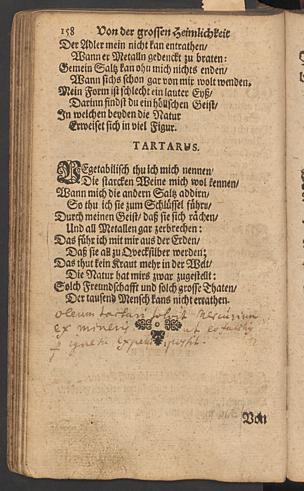 158 Von der grossen Heimlichkeit
Der Adler mein nicht kan entrathen/
Wann er Metalln gedenckt zu braten:
Gemein Saltz kan ohn mich nichts enden/
Wann sichs schon gar von mir wolt wenden.
Mein Form ist schlecht ein lauter Eyß/
Darinn findst du ein höllschen Geist/
In welchen beyden die Natur
Erweiset sich in viel Figur.
TARTARUS.
VEgetabilisch thu ich mich nennen/
Die starcken Weine mich wol kennen/
Wann mich die andern Saltz addirn/
So thu ich sie zum Schlüssel führn/
Durch meinen Geist/ daß sie sich rächen/
Und all Metallen gar zerbrechen:
Das führ ich mit mir aus der Erden/
Daß sie all zu Quecksilber werden:
Das thut kein Kraut mehr in der Welt/
Die Natur hat mirs zwar zugestellt:
Solch Freundschafft und solch grosse Thaten/
Der tausend Mensch kans nicht errathen.
oleum tartari solvit Mercurium
ex mineris ut
ignem
Von